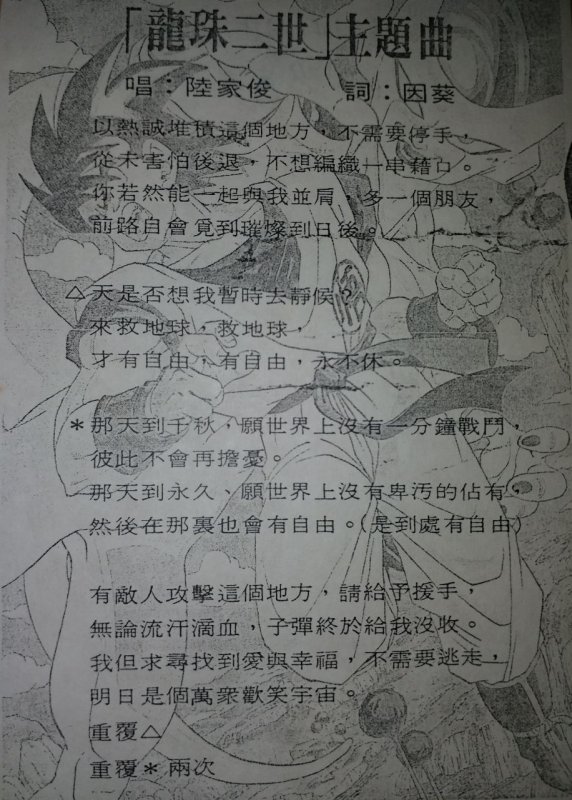 「龍珠二世」主題曲
唱：陸家俊　詞：因葵
以熱誠堆積這個地方，不需要停手，
從未害怕後退，不想編織一串藉口。
你若然能一起與我並肩，多一個朋友，
前路自會覓到璀燦到日後。
△天是否想我暫時去靜候？
來救地球，救地球，
才有自由，有自由，永不休。
*那天到千秋，願世界上沒有一分鐘戰鬥，
彼此不會再擔憂。
那天到永久、願世界上沒有卑汚的佔有，
然後在那裏也會有自由。(是到處有自由)
有敵人攻擊這個地方，請給予援手，
無論流汗滴血，子彈終於給我沒收。
我但求尋找到愛與幸福，不需要逃走，
明日是個萬衆歡笑宇宙。
重覆△
重覆*兩次